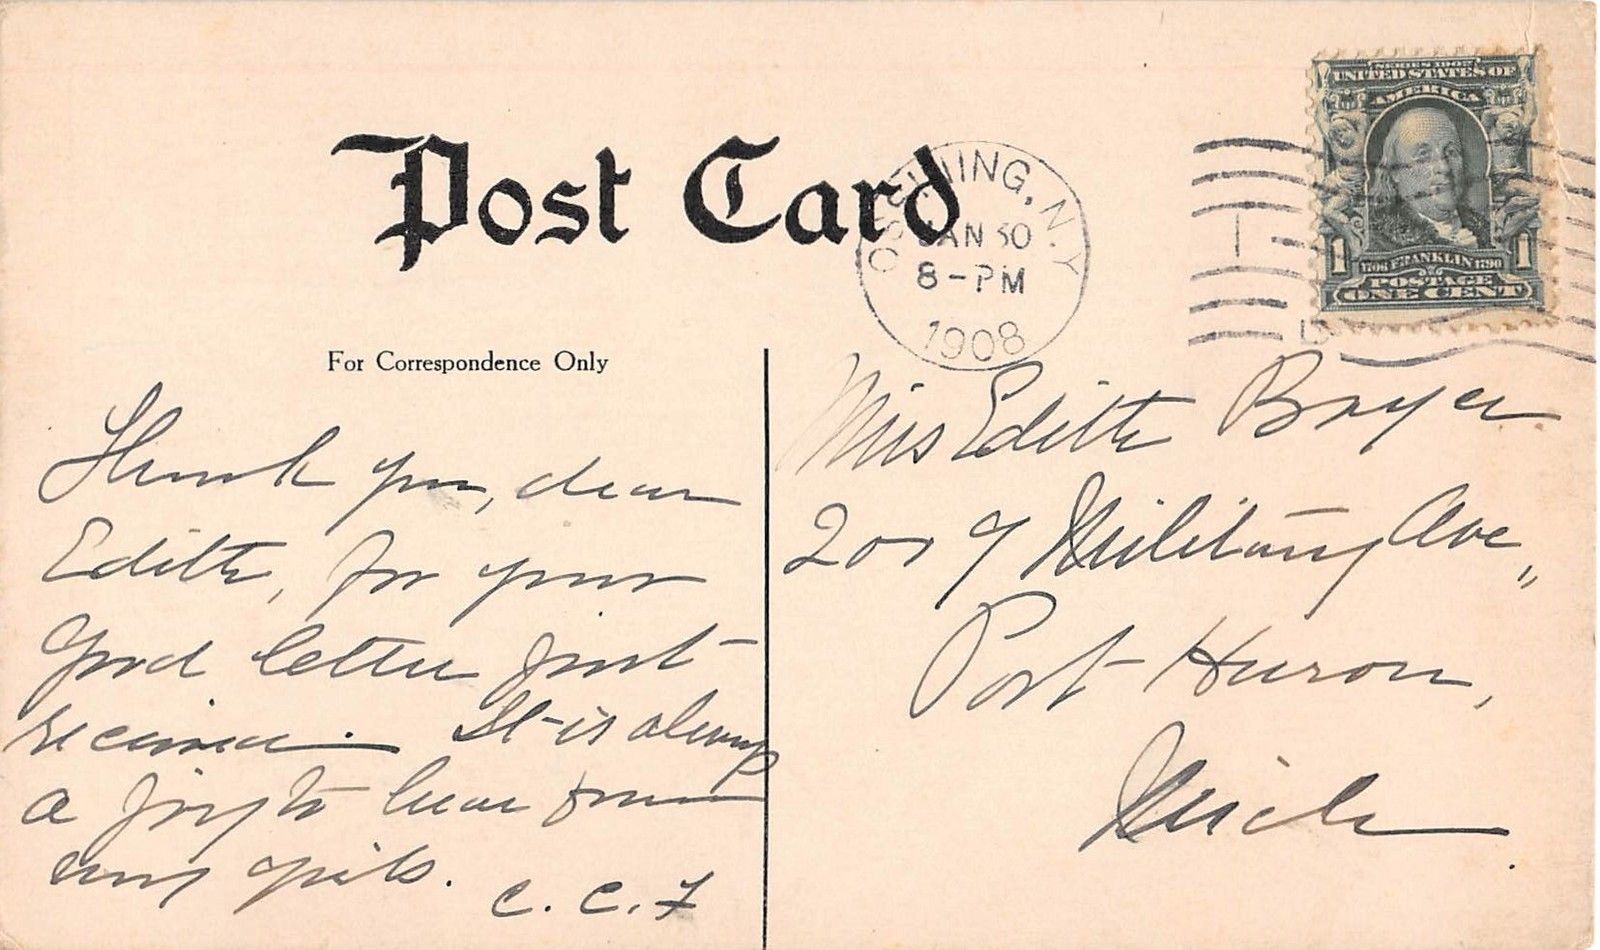 Post Card
OSSINING, N.Y.
JAN 30
8-PM
1908
SERIES 1902
UNITED STATES OF
AMERICA
1 1
1706 FRANKLIN 1790
POSTAGE
ONE CENT
For Correspondence Only
Thank you, dear
Edith, for your
good letter just
received. It is always
a joy to hear from
my girls.
C. C. F
Miss Edith Boyer
2009 Military Ave,
Port Huron,
Mich.